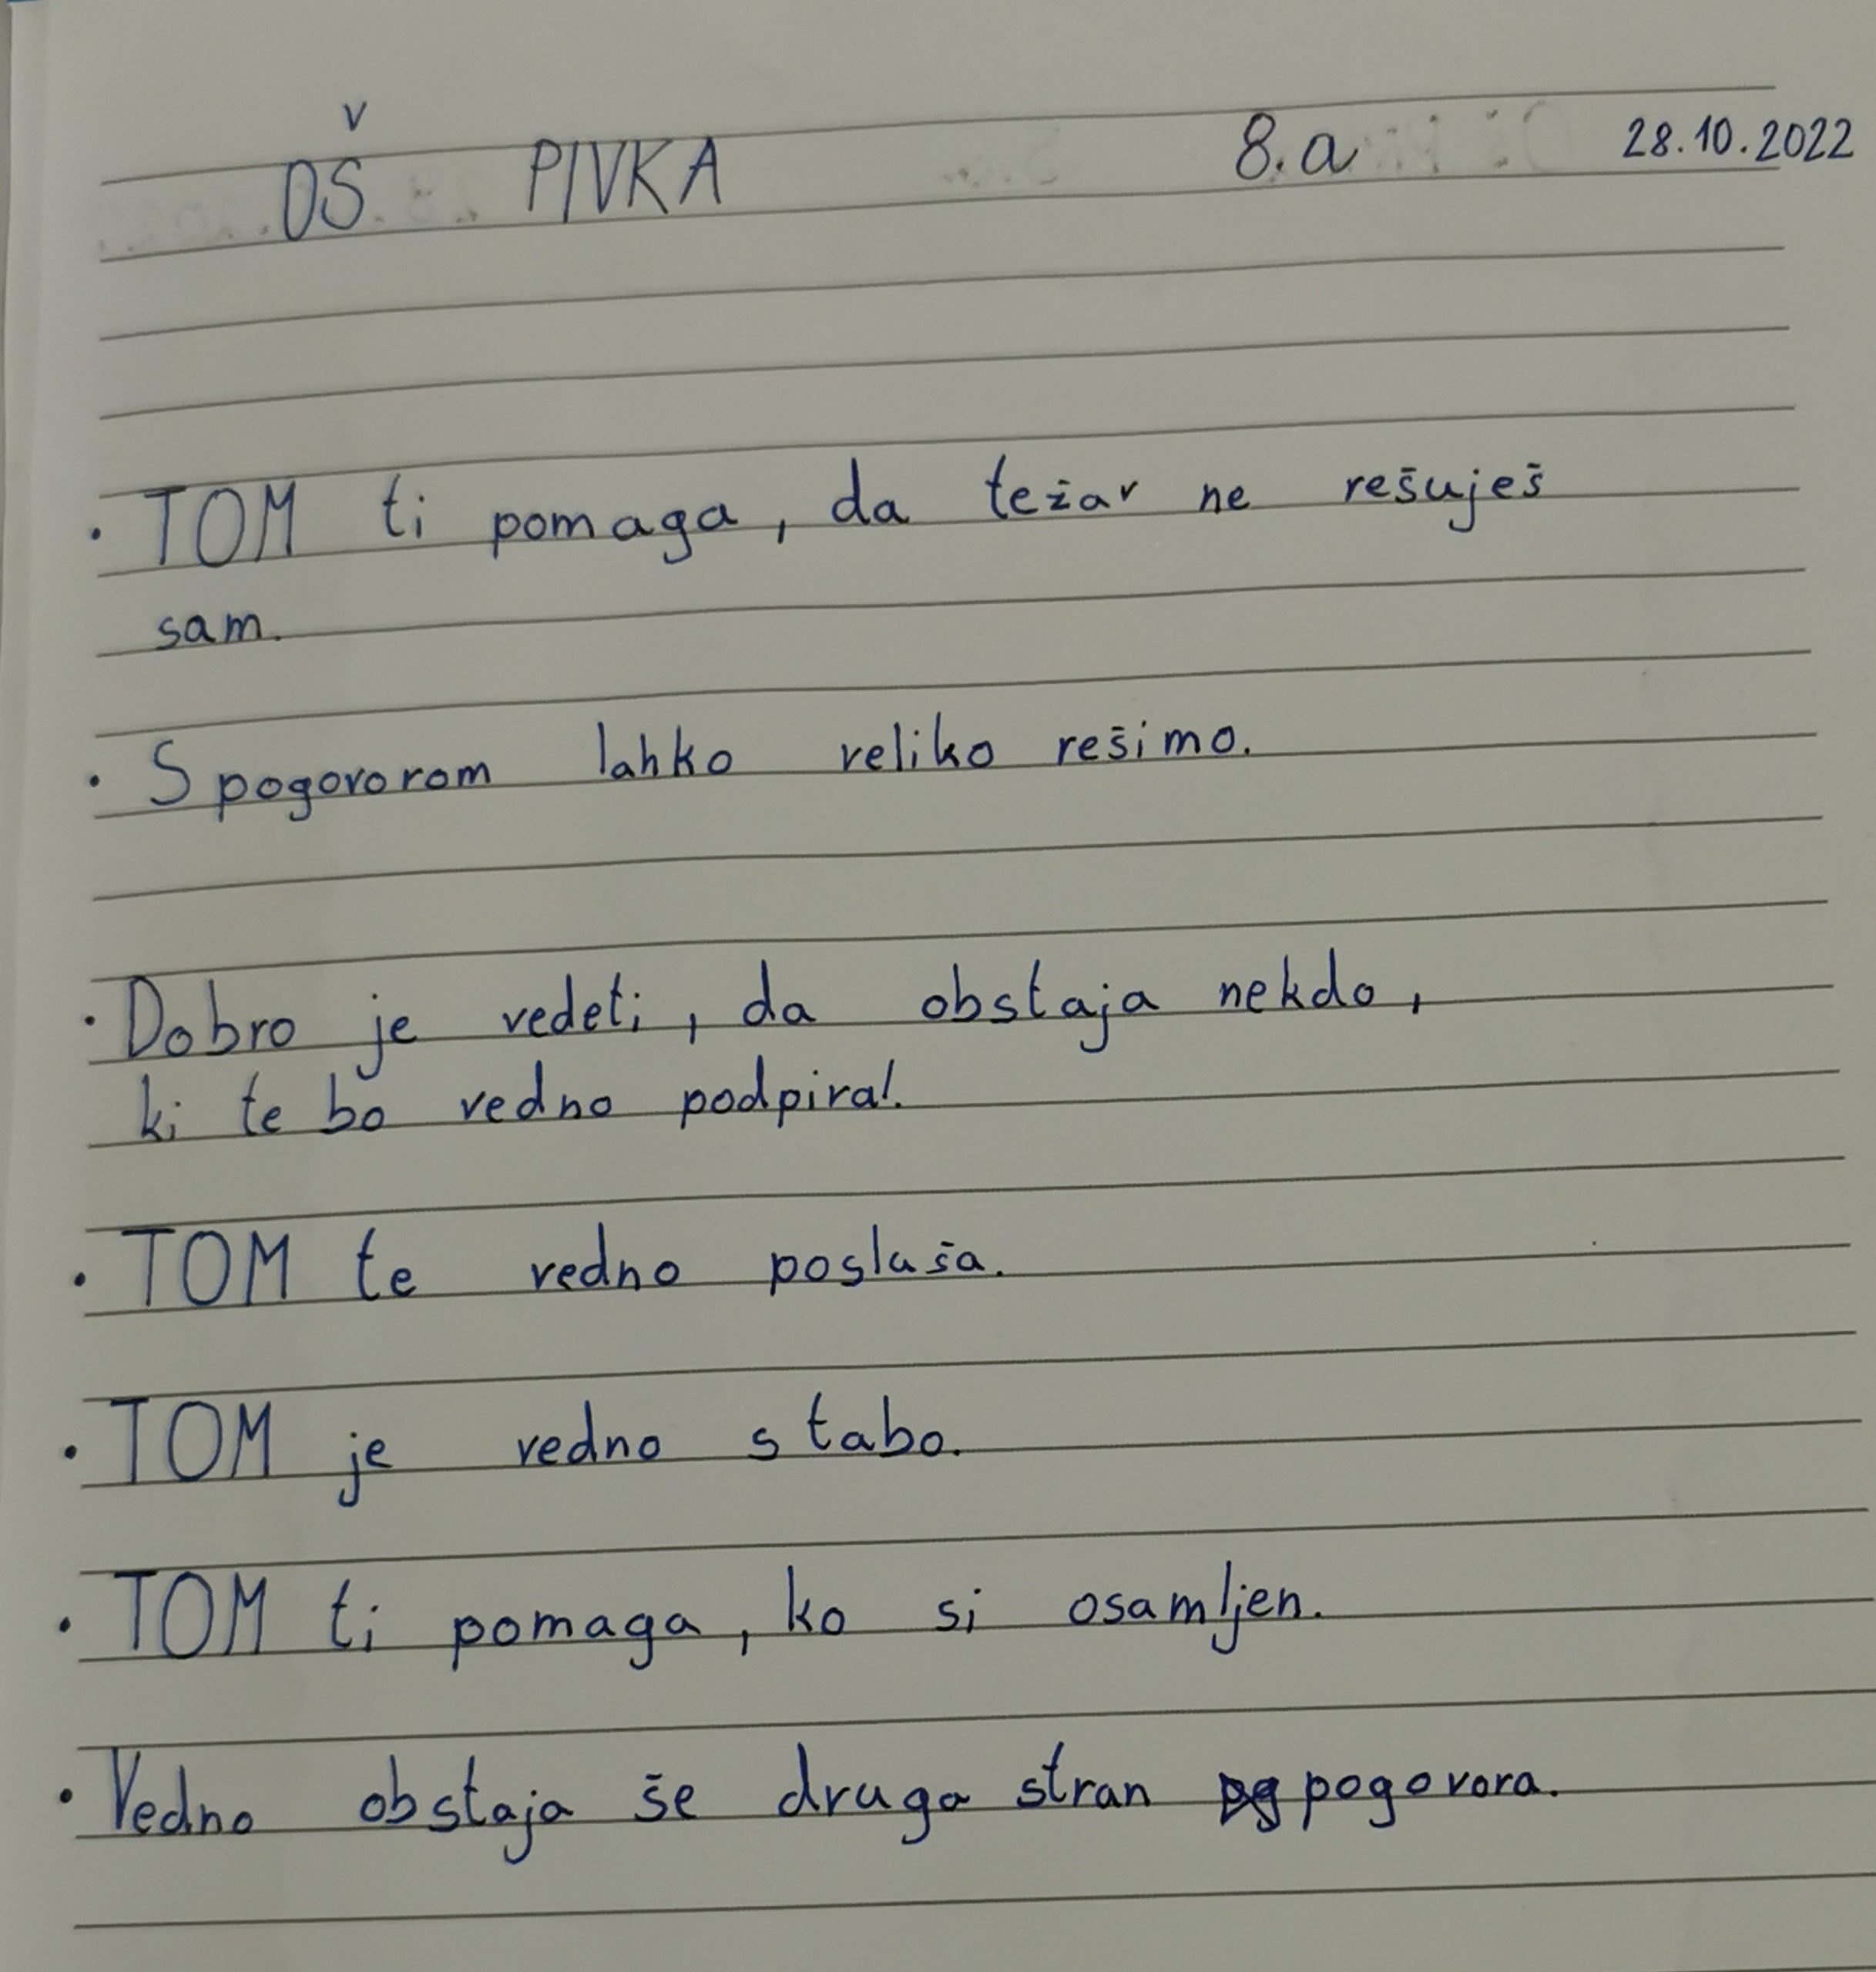 OŠ PIVKA 8.a 28.10.2022
• TOM ti pomaga, da težav ne rešuješ
sam.
• S pogovorom lahko veliko rešimo.
• Dobro je vedeti, da obstaja nekdo,
ki te bo vedno podpiral.
• TOM te vedno posluša.
• TOM je vedno s tabo.
• TOM ti pomaga, ko si osamljen.
• Vedno obstaja še druga stran pogovora.